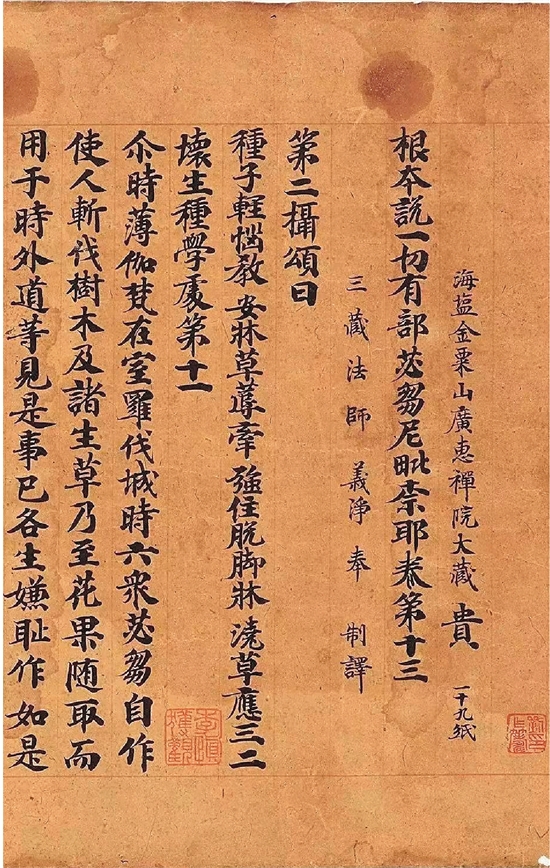 海塩金粟山廣惠禪院大藏 貴 一十九紙
根夲說一切有部苾芻尼毗柰耶卷第十三
三藏法師義淨奉 制譯
第二攝頌曰
種子輕惱教 安牀草蓐牽 強住脫脚牀 澆草應三二
壞生種學處第十一
尒時薄伽梵在室羅伐城時六衆苾芻自作
使人斬伐樹木及諸生草乃至花果随取而
用于時外道等見是事已各生嫌耻作如是